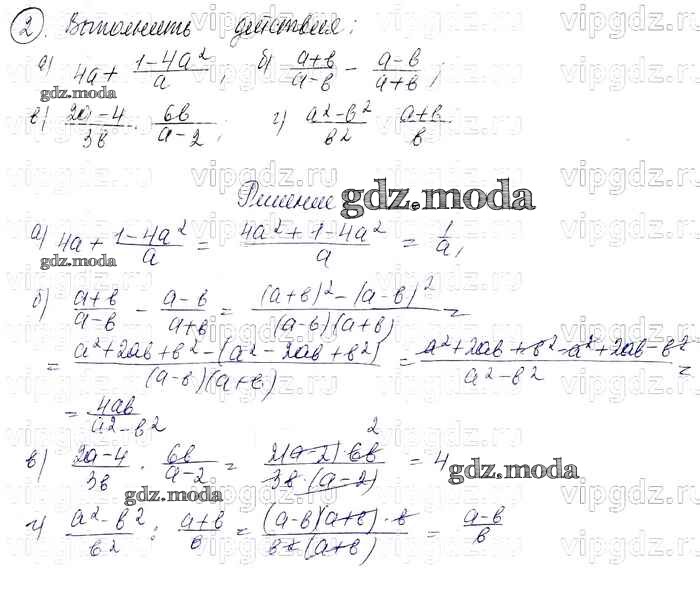 2. Выполнить действия:
а) 4a + (1-4a²)/a ; б) (a+b)/(a-b) - (a-b)/(a+b) ;
gdz.moda
в) (2a-4)/3b · 6b/(a-2) ; г) (a²-b²)/b² : (a+b)/b
Решение gdz.moda
а) 4a + (1-4a²)/a = (4a²+1-4a²)/a = 1/a ,
gdz.moda
б) (a+b)/(a-b) - (a-b)/(a+b) = ((a+b)²-(a-b)²)/((a-b)(a+b)) =
= (a²+2ab+b²-(a²-2ab+b²))/((a-b)(a+b)) = (a²+2ab+b²-a²+2ab-b²)/(a²-b²) =
= 4ab/(a²-b²)
в) (2a-4)/3b · 6b/(a-2) = (2(a-2)·6b)/(3b·(a-2)) 2 = 4
gdz.moda gdz.moda
г) (a²-b²)/b² : (a+b)/b = ((a-b)(a+b)·b)/(b²·(a+b)) = (a-b)/b
vipgdz.ru